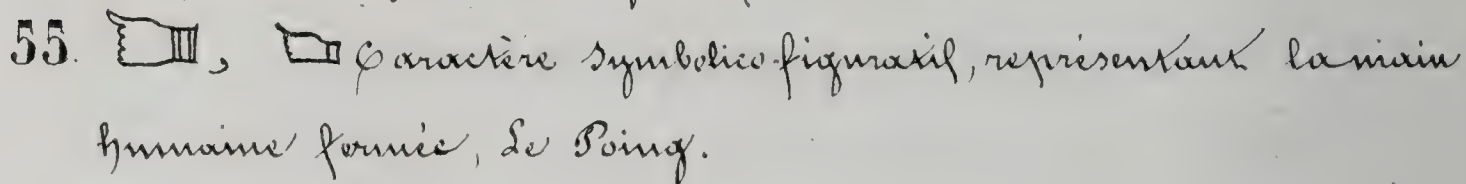 55. , Caractère symbolico-figuratif, représentant la main
humaine fermée, Le Poing.